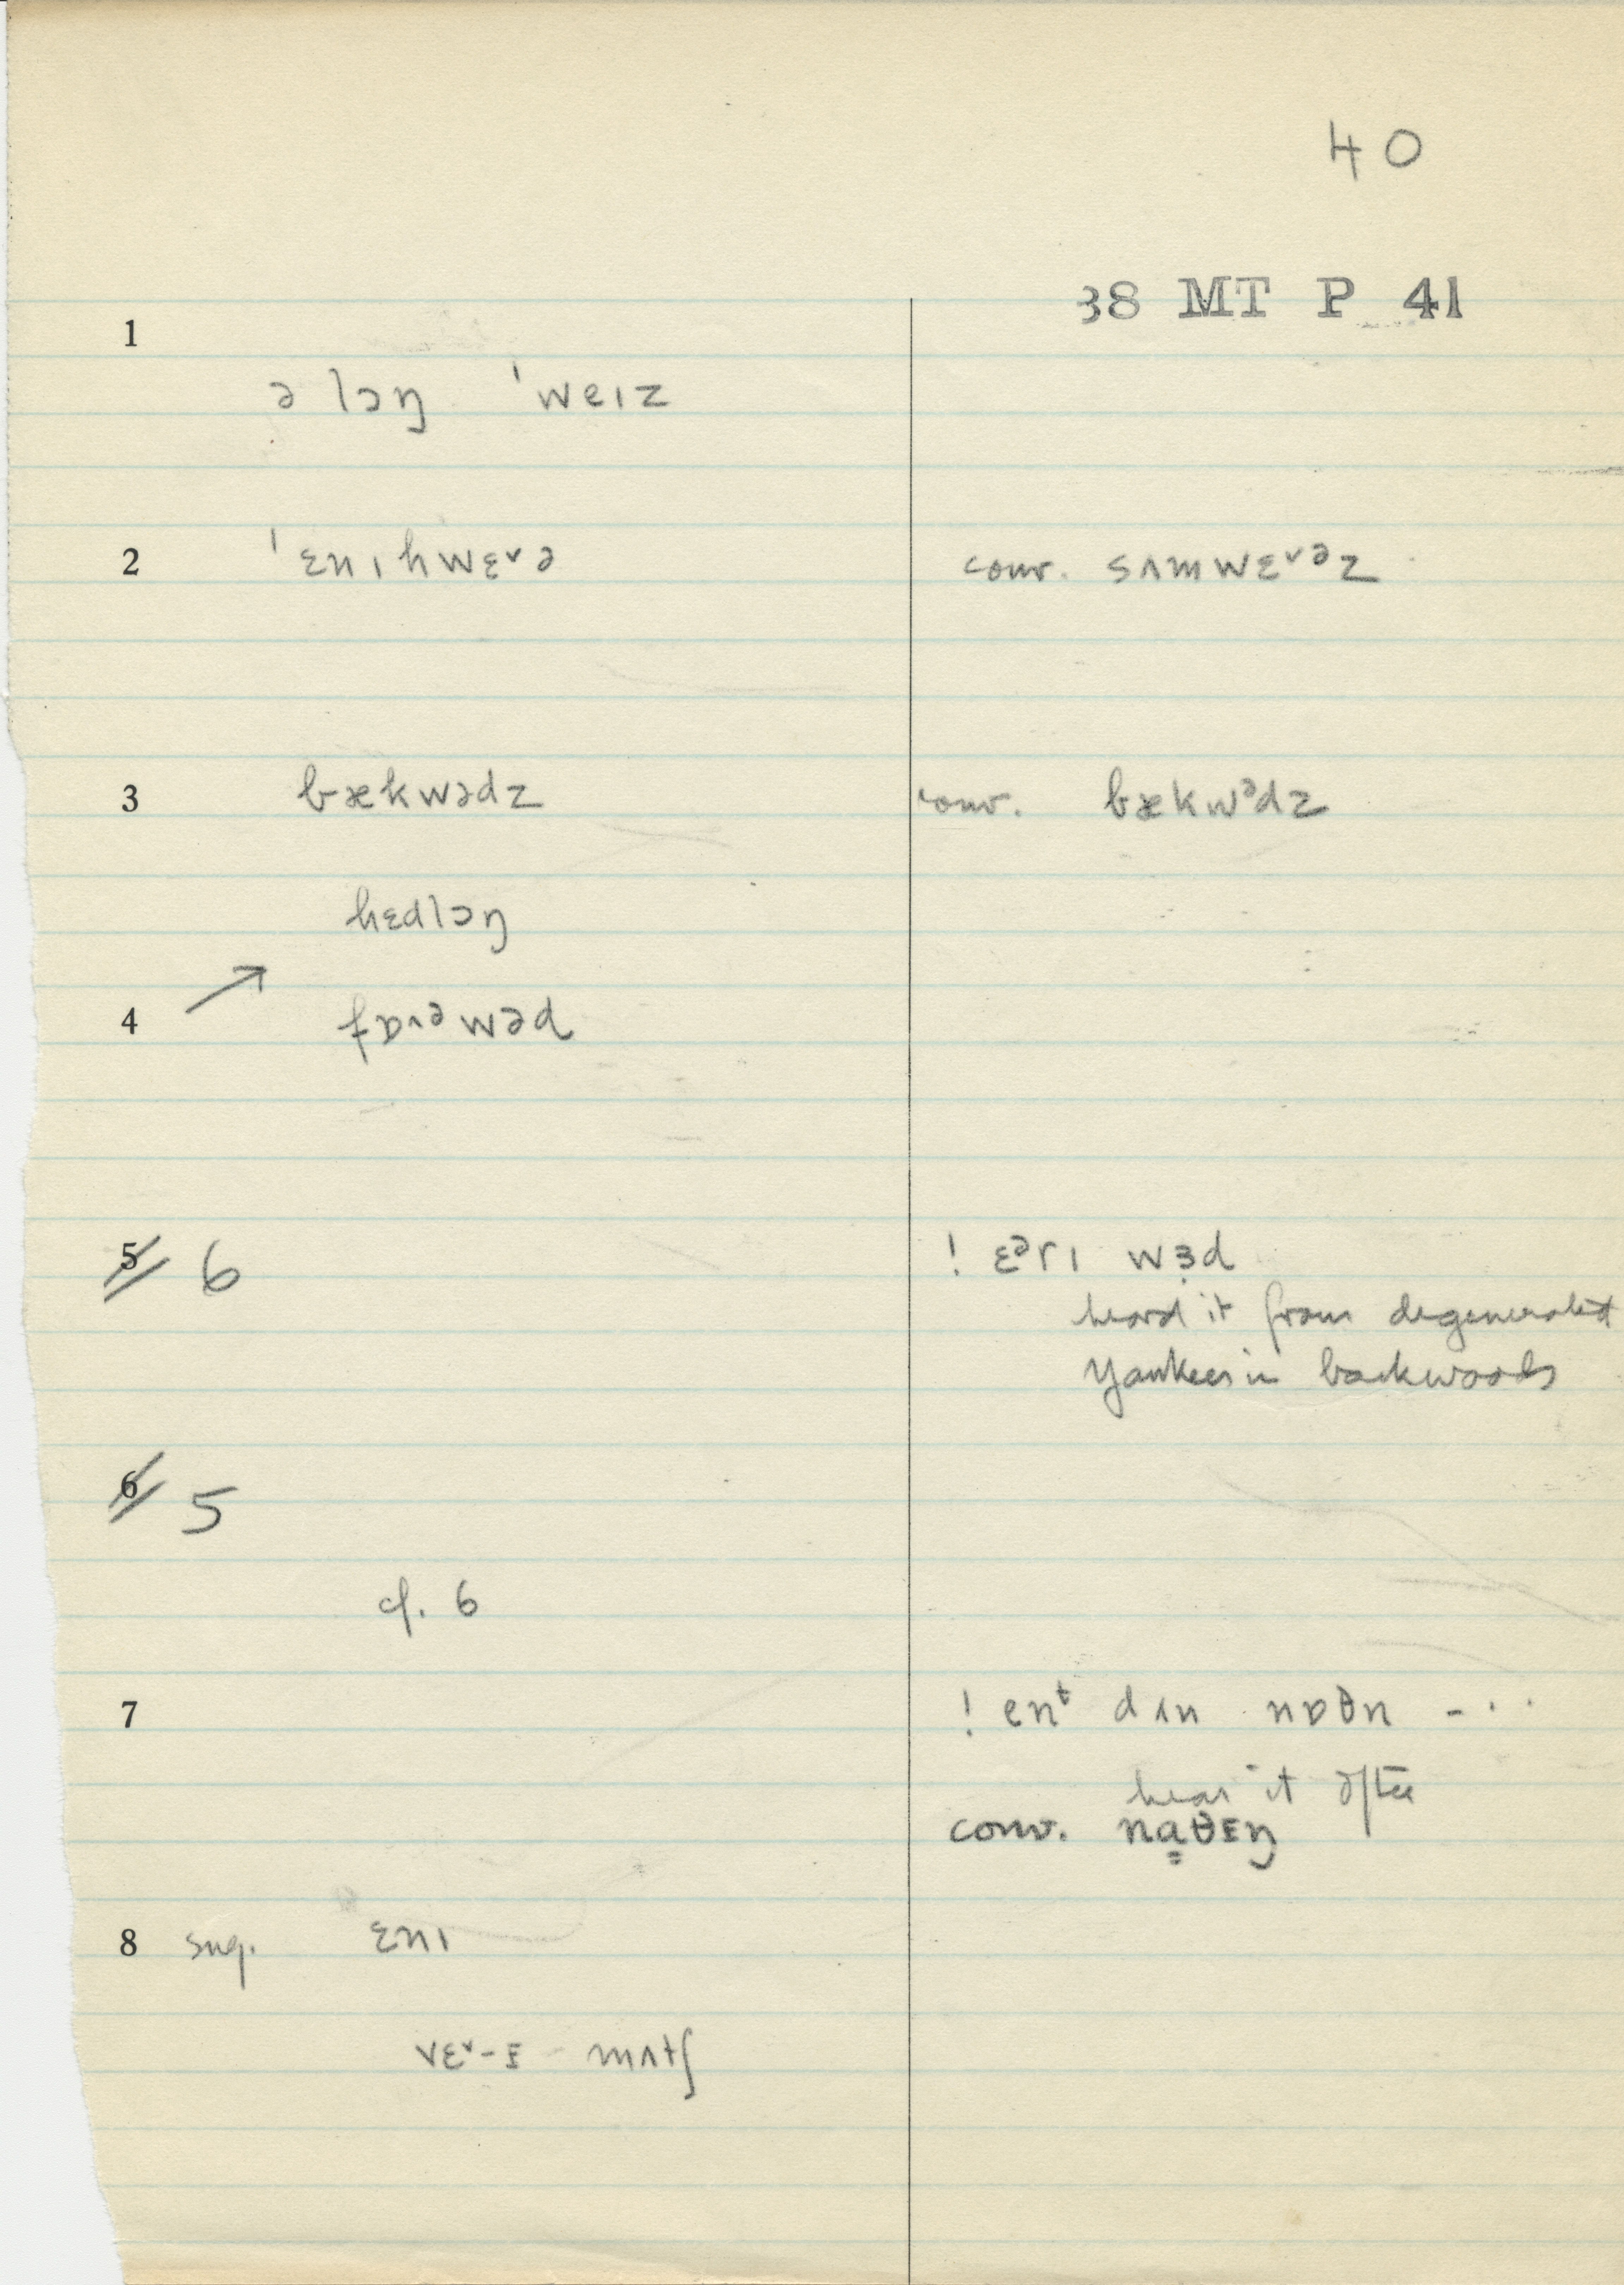 40
38 MT P 41
1
ə lɔŋ ˈweɪz
2 ˈɛnɪhwɛ˅ə conv. sʌmwɛ˅ᵊz
3 bækwədz conv. bækwᵊdz
hɛdlɔŋ
4 ↗ fɒ˄ᵊwəd
5 6 ! ɛᵊrɪ wɜd
heard it from degenerated
Yankees in backwoods
6 5
cf. 6
7 ! enᵗ dʌn nɒθn - · ·
hear it often
conv. nɑθɪŋ
8 sug. ɛnɪ
vɛ˅-ɪ mʌtʃ